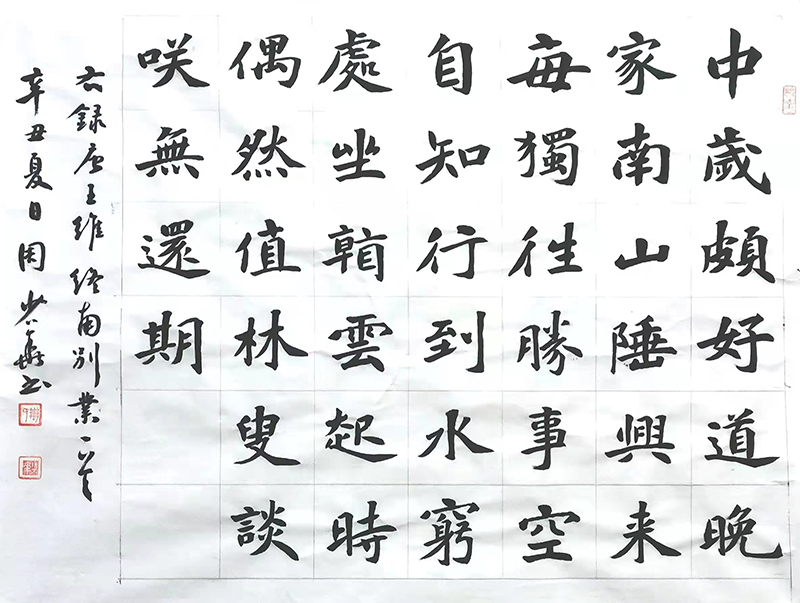 中歲頗好道晚
家南山陲興来
毎獨徃勝事空
自知行到水窮
處坐看雲起時
偶然值林叟談
咲無還期
右錄唐王維終南別業一首
辛丑夏日周少華書